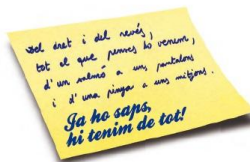 Del dret i del revés,
tot el que penses ho venem,
d'un salmó a un pantalons
i d'una pinya a uns mitjons.
Ja ho saps,
hi tenim de tot!